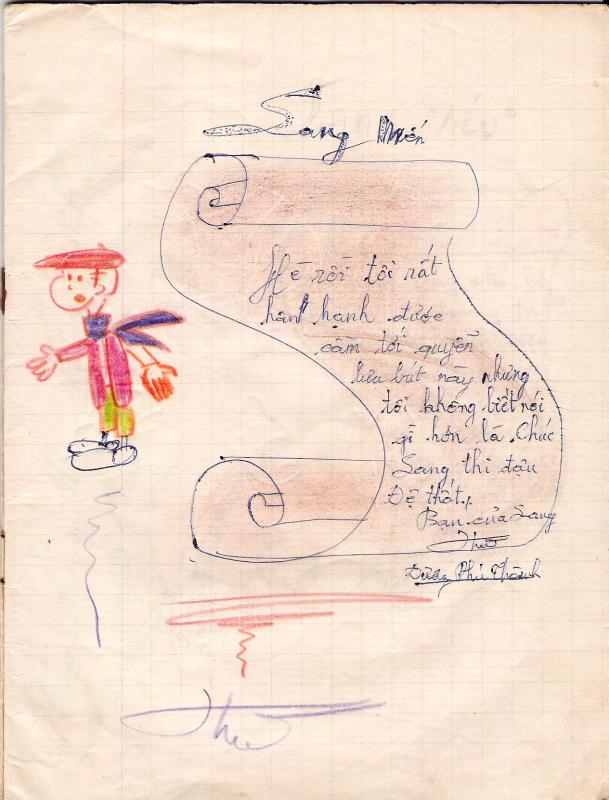 Sang Mến
Hè rồi tôi rất
hân hạnh được
cầm tới quyển
lưu bút này nhưng
tôi không biết nói
gì hơn là Chúc
Sang thi đậu
Đệ thất.
Bạn của Sang
Thu
Phú Thành
Thu